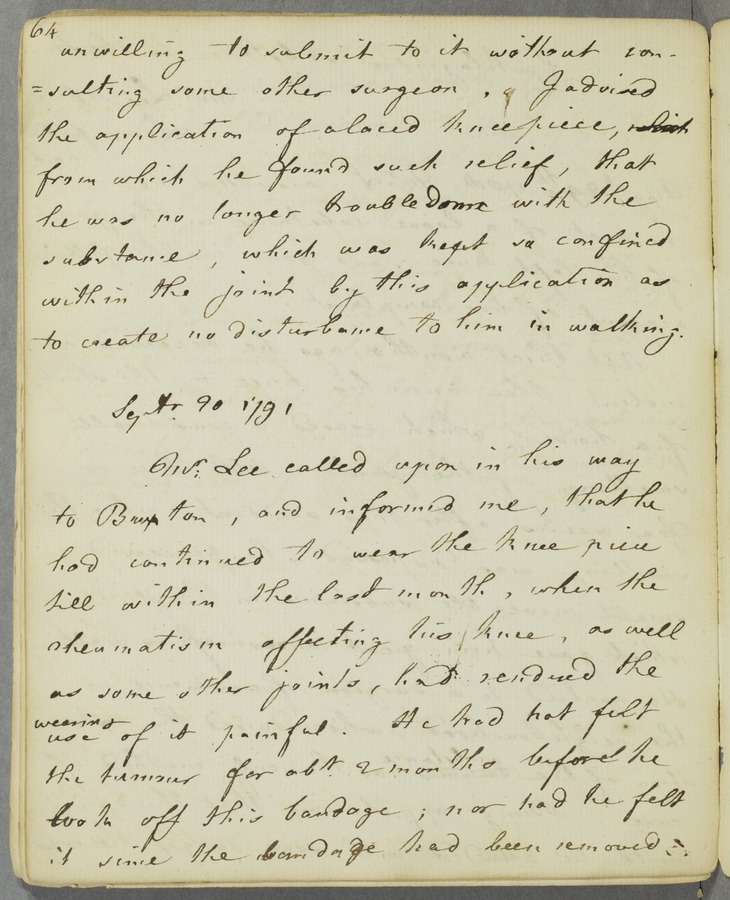 64
unwilling to submit to it without con-
=sulting some other surgeon. I advised
the application of a laced knee piece, which
from which he found such relief, that
he was no longer troubled with the
substance, which was kept so confined
within the joint by this application as
to create no disturbance to him in walking.
Septr. 20 1791
Mr. Lee called upon in his way
to Buxton, and informed me, that he
had continued to wear the knee piece
till within the last month, when the
rheumatism affecting his knee, as well
as some other joints, had rendered the
wearing
use of it painful. He had not felt
the tumour for abt. 2 months before he
took off this bandage; nor had he felt
it since the bandage had been removed.